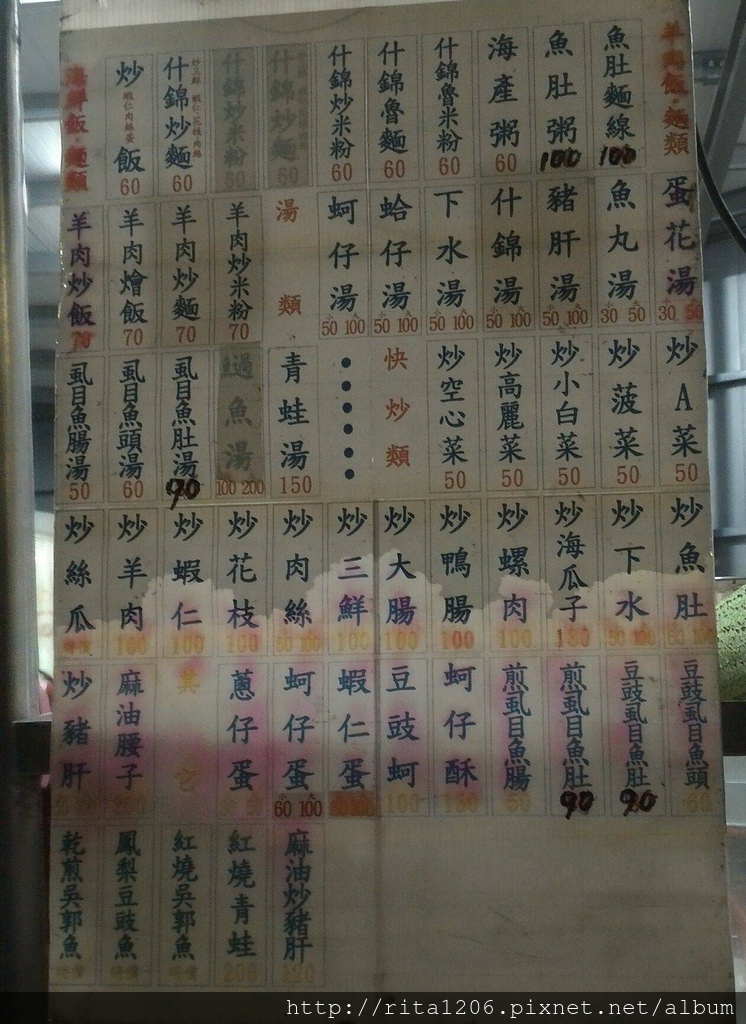 海鮮飯·麵類
炒飯 蝦仁肉絲蛋 60
什錦炒麵 60
什錦炒米粉 60
什錦炒麵 60
什錦炒米粉 60
什錦魯麵 60
什錦魯米粉 60
海產粥 60
魚肚粥 100
魚肚麵線 100
羊肉飯·麵類
羊肉炒飯 70
羊肉燴飯 70
羊肉炒麵 70
羊肉炒米粉 70
湯類
蚵仔湯 小50 大100
蛤仔湯 小50 大100
下水湯 小50 大100
什錦湯 小50 大100
豬肝湯 小50 大100
魚丸湯 小30 大50
蛋花湯 小30 大50
虱目魚腸湯 50
虱目魚頭湯 60
虱目魚肚湯 90
過魚湯 100 200
青蛙湯 150
快炒類
炒空心菜 50
炒高麗菜 50
炒小白菜 50
炒菠菜 50
炒A菜 50
炒絲瓜 時價
炒羊肉 100
炒蝦仁 100
炒花枝 100
炒肉絲 50 100
炒三鮮 100
炒大腸 100
炒鴨腸 100
炒螺肉 100
炒海瓜子
炒下水 50 100
炒魚肚
炒豬肝
麻油腰子
其它
蔥仔蛋
蚵仔蛋 小60 大100
蝦仁蛋
豆豉蚵 100
蚵仔酥
煎虱目魚腸
煎虱目魚肚 90
豆豉虱目魚肚 90
豆豉虱目魚頭 60
乾煎吳郭魚 時價
鳳梨豆豉魚 時價
紅燒吳郭魚 時價
紅燒青蛙 200
麻油炒豬肝 120
http://rita1206.pixnet.net/album